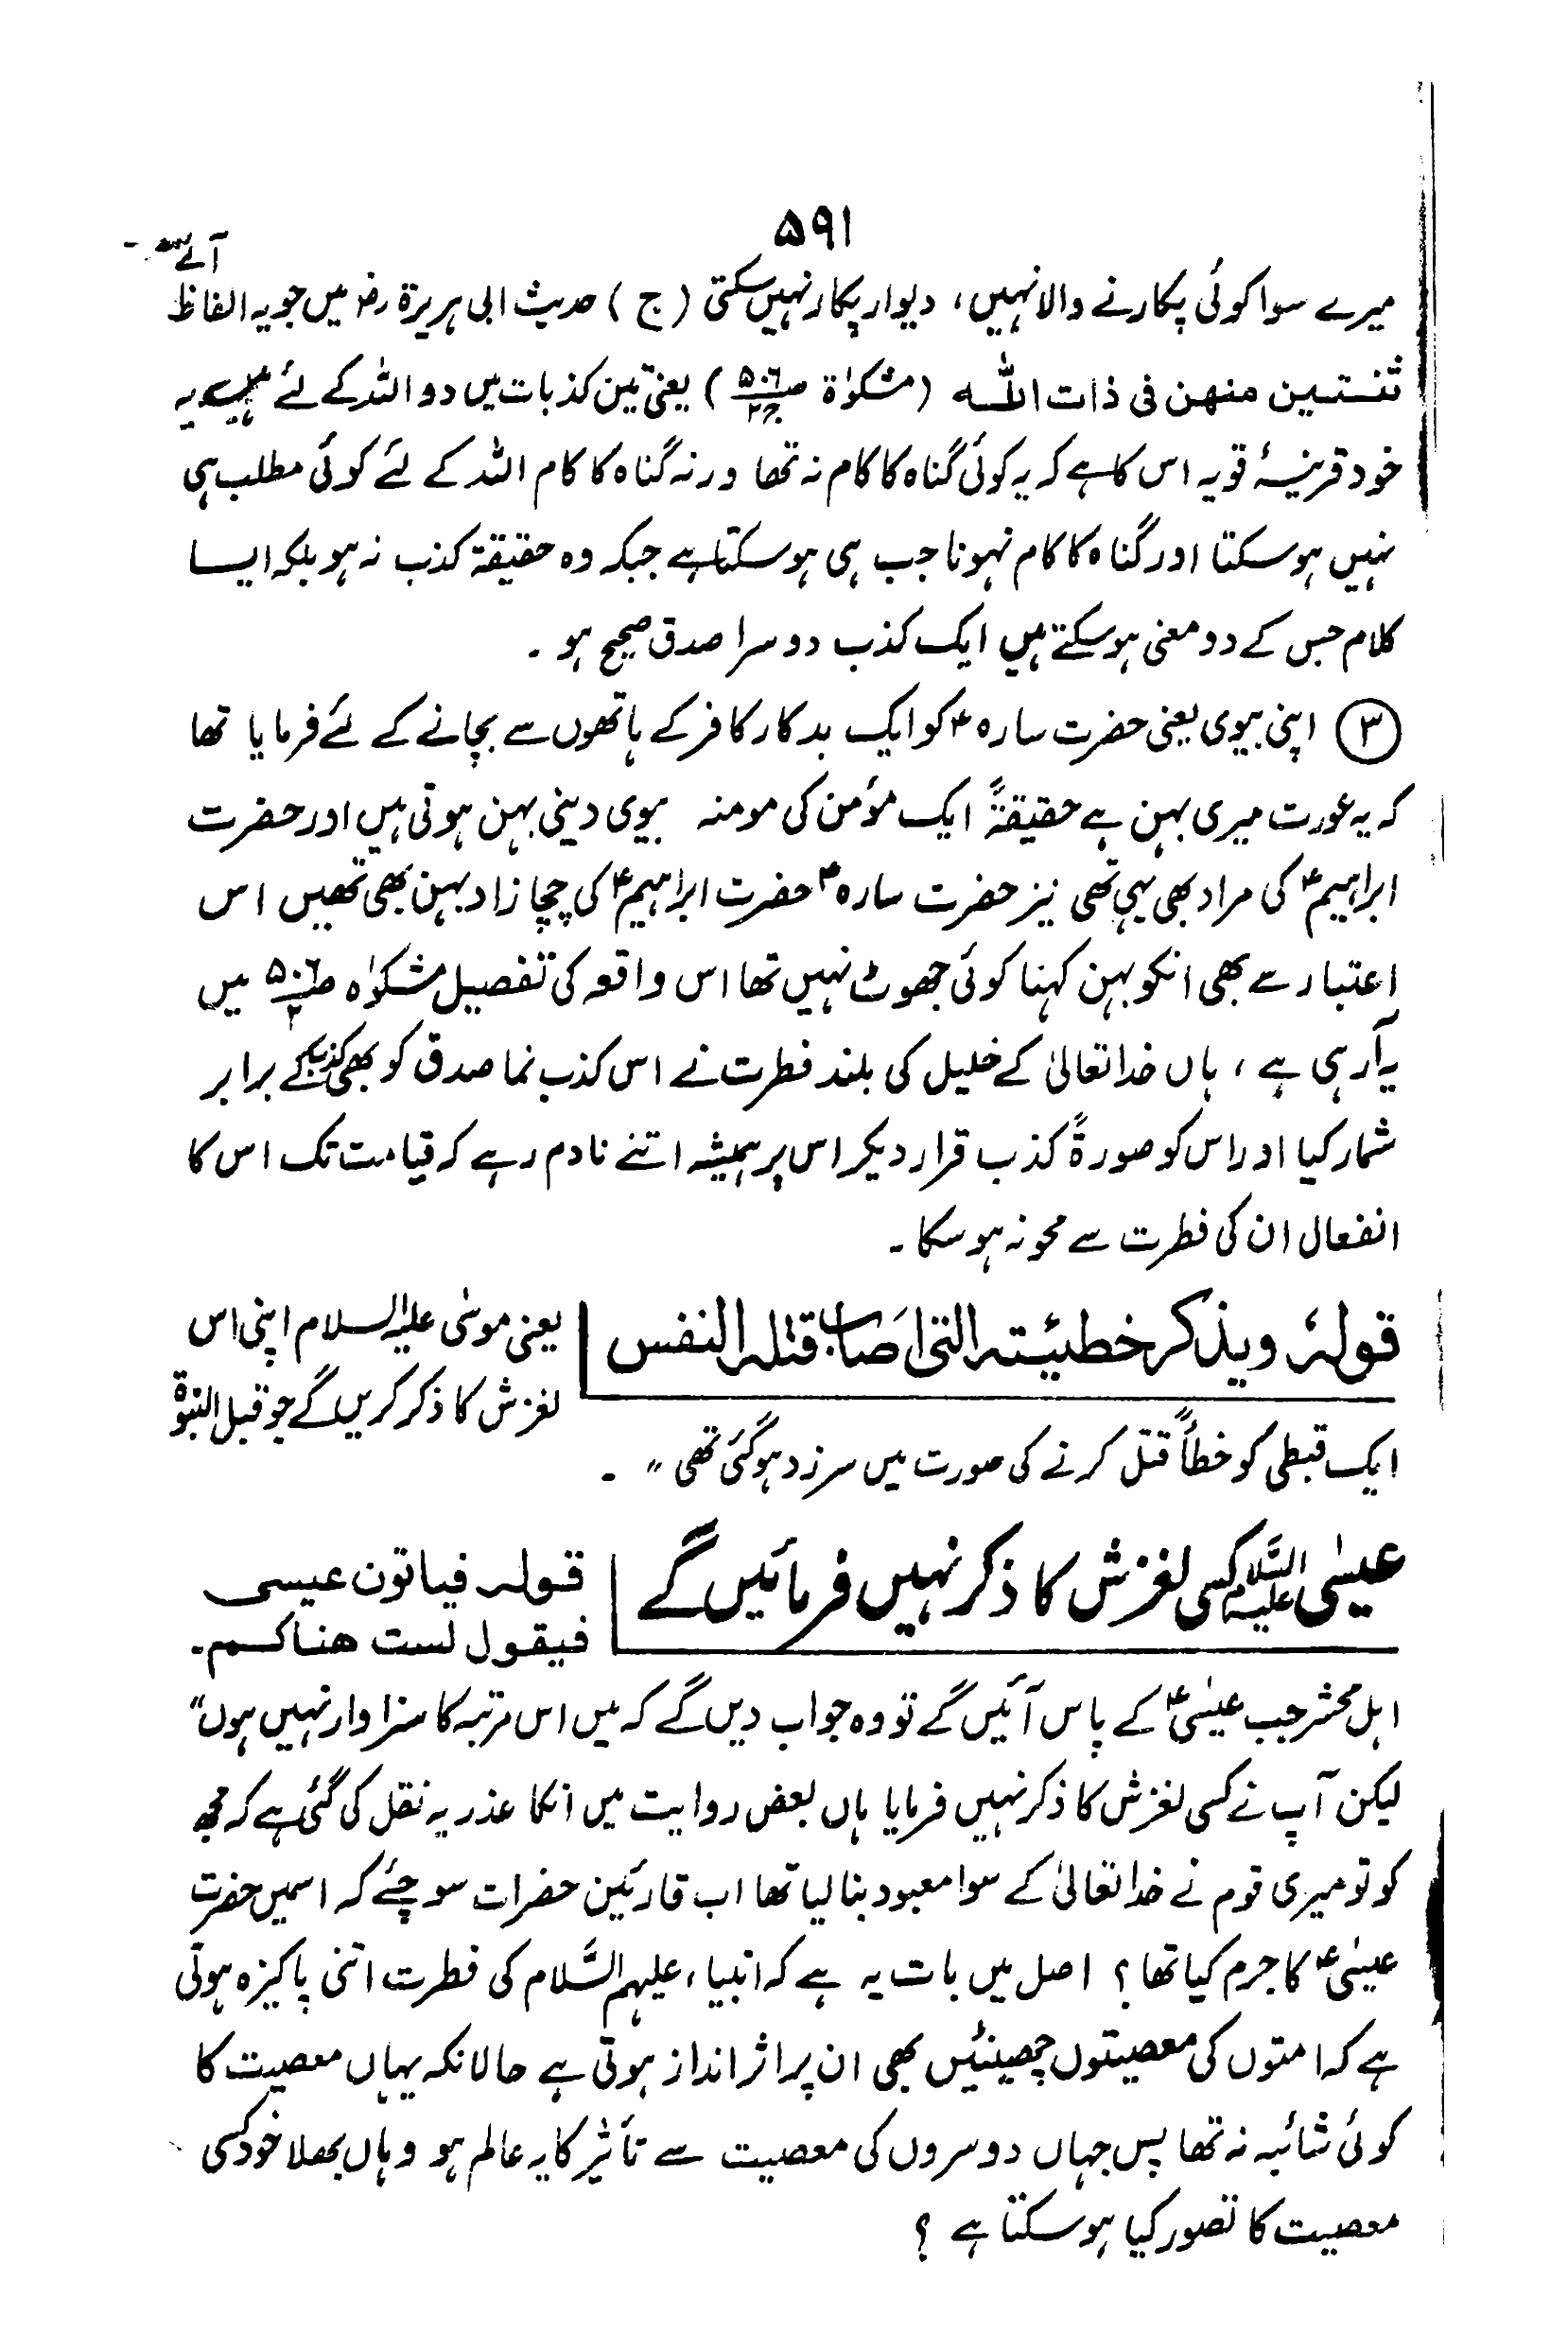 ۵۹۱
میرے سوا کوئی پکارنے والا نہیں، دیوار پکار نہیں سکتی (ج) حدیث ابی ہریرۃ رض میں جو یہ الفاظ آئے
ثنتین منهن فی ذات اللہ (مشکوٰۃ ص۵۰۶ ج۲) یعنی تین کذبات میں دو اللہ کے لئے ہیں یہ
خود قرینۂ قویہ اس کا ہے کہ یہ کوئی گناہ کا کام نہ تھا ورنہ گناہ کا کام اللہ کے لئے کوئی مطلب ہی
نہیں ہو سکتا اور گناہ کا کام نہونا جب ہی ہو سکتا ہے جبکہ وہ حقیقۃ کذب نہ ہو بلکہ ایسا
کلام جس کے دو معنی ہو سکتے ہیں ایک کذب دوسرا صدق صحیح ہو ۔
③ اپنی بیوی یعنی حضرت سارہ ؑ کو ایک بدکار کافر کے ہاتھوں سے بچانے کے لئے فرمایا تھا
کہ یہ عورت میری بہن ہے حقیقۃً ایک مؤمن کی مومنہ بیوی دینی بہن ہوتی ہیں اور حضرت
ابراہیم ؑ کی مراد بھی یہی تھی نیز حضرت سارہ ؑ حضرت ابراہیم ؑ کی چچازاد بہن بھی تھیں اس
اعتبار سے بھی انکو بہن کہنا کوئی جھوٹ نہیں تھا اس واقعہ کی تفصیل مشکوٰۃ ص۵۰۶ ۲ میں
یہ آرہی ہے ، ہاں خدا تعالیٰ کے خلیل کی بلند فطرت نے اس کذب نما صدق کو بھی کذب کے برابر
شمار کیا اور اس کو صورۃً کذب قرار دیکر اس پر ہمیشہ اتنے نادم رہے کہ قیامت تک اس کا
انفعال ان کی فطرت سے محو نہ ہو سکا ۔
قولہٗ ویذکر خطیئتہ التی اَصَاب قتلہ النفس
یعنی موسیٰ علیہ السلام اپنی اس
لغزش کا ذکر کریں گے جو قبل النبوۃ
ایک قبطی کو خطأً قتل کرنے کی صورت میں سرزد ہو گئی تھی ” ۔
عیسٰی علیہ السَّلام کسی لغزش کا ذکر نہیں فرمائیں گے
قولہ فیاتون عیسی
فیقول لست هناکم۔
اہل محشر جب عیسٰی ؑ کے پاس آئیں گے تو وہ جواب دیں گے کہ میں اس مرتبہ کا سزاوار نہیں ہوں”
لیکن آپ نے کسی لغزش کا ذکر نہیں فرمایا ہاں بعض روایت میں انکا عذر یہ نقل کی گئی ہے کہ مجھ
کو تو میری قوم نے خدا تعالیٰ کے سوا معبود بنا لیا تھا اب قارئین حضرات سوچئے کہ اسمیں حضرت
عیسٰی ؑ کا جرم کیا تھا ؟ اصل میں بات یہ ہے کہ انبیاء علیہم السَّلام کی فطرت اتنی پاکیزہ ہوتی
ہے کہ امتوں کی معصیتوں چھینٹیں بھی ان پر اثر انداز ہوتی ہے حالانکہ یہاں معصیت کا
کوئی شائبہ نہ تھا پس جہاں دوسروں کی معصیت سے تأثیر کا یہ عالم ہو وہاں بھلا خود کسی
معصیت کا تصور کیا ہو سکتا ہے ؟